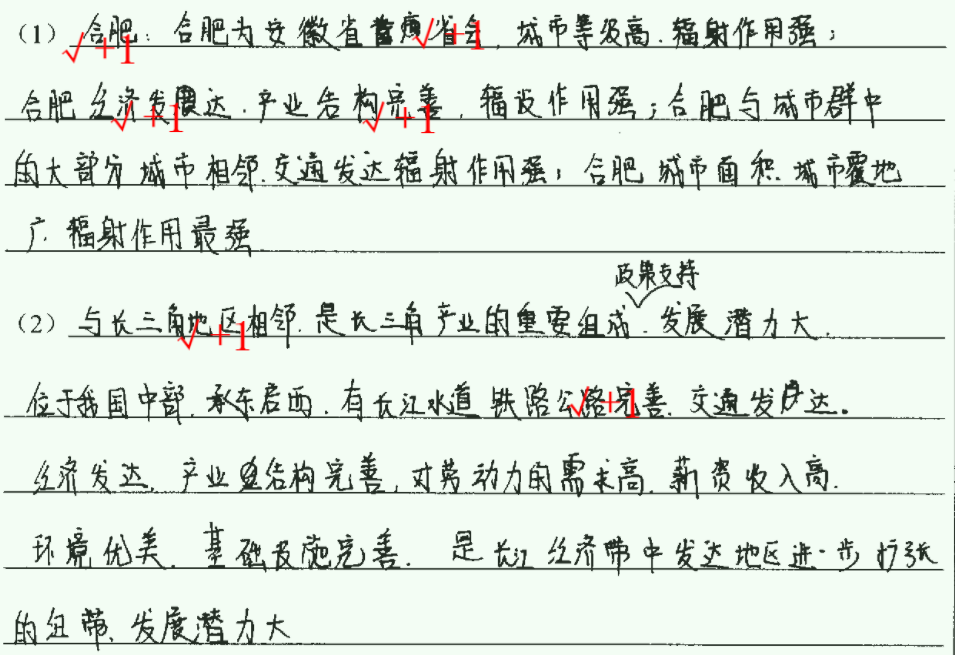 (1) 合肥：合肥为安徽省省会，城市等级高，辐射作用强；
√+1 √+1
合肥经济发达，产业结构完善，辐设作用强；合肥与城市群中
√+1 √+1
的大部分城市相邻，交通发达辐射作用强；合肥城市面积，城市覆地
广，辐射作用最强
政策支持
(2) 与长三角地区相邻，是长三角产业的重要组成，发展潜力大，
√+1
位于我国中部，承东启西，有长江水道铁路公路完善，交通发达。
√+1
经济发达，产业结构完善，对劳动力的需求高，薪资收入高.
环境优美，基础设施完善. 是长江经济带中发达地区进一步扩张
的纽带、发展潜力大